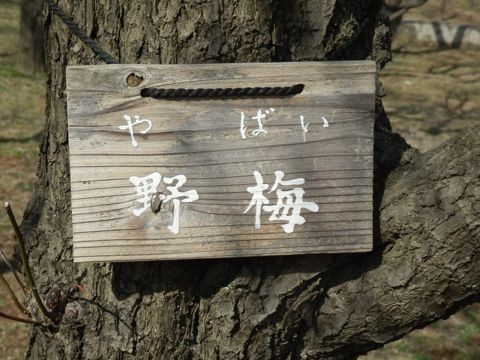 やばい
野梅